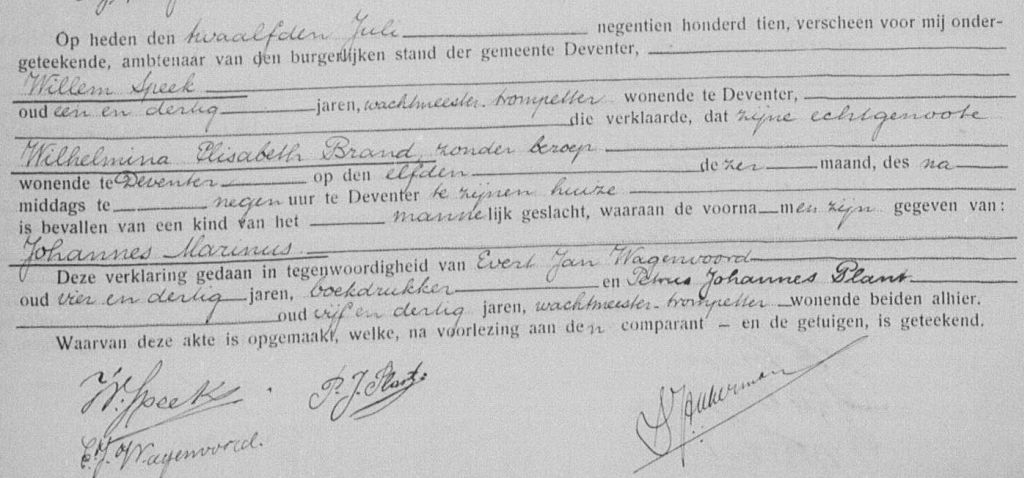 Op heden den twaalfden Juli negentien honderd tien, verscheen voor mij onder-
geteekende, ambtenaar van den burgerlijken stand der gemeente Deventer,
Willem Speek
oud een en dertig jaren, wachtmeester-trompetter wonende te Deventer,
die verklaarde, dat zijne echtgenoote
Wilhelmina Elisabeth Brand, zonder beroep
wonende te Deventer op den elfden dezer maand, des na
middags te negen uur te Deventer te zijnen huize
is bevallen van een kind van het mannelijk geslacht, waaraan de voorna men zijn gegeven van:
Johannes Marinus.
Deze verklaring gedaan in tegenwoordigheid van Evert Jan Wagenvoord
oud vier en dertig jaren, boekdrukker en Petrus Johannes Plant
oud vijf en dertig jaren, wachtmeester-trompetter wonende beiden alhier.
Waarvan deze akte is opgemaakt, welke, na voorlezing aan den comparant – en de getuigen, is geteekend.
W. Speek P. J. Plant
E. J. Wagenvoord.